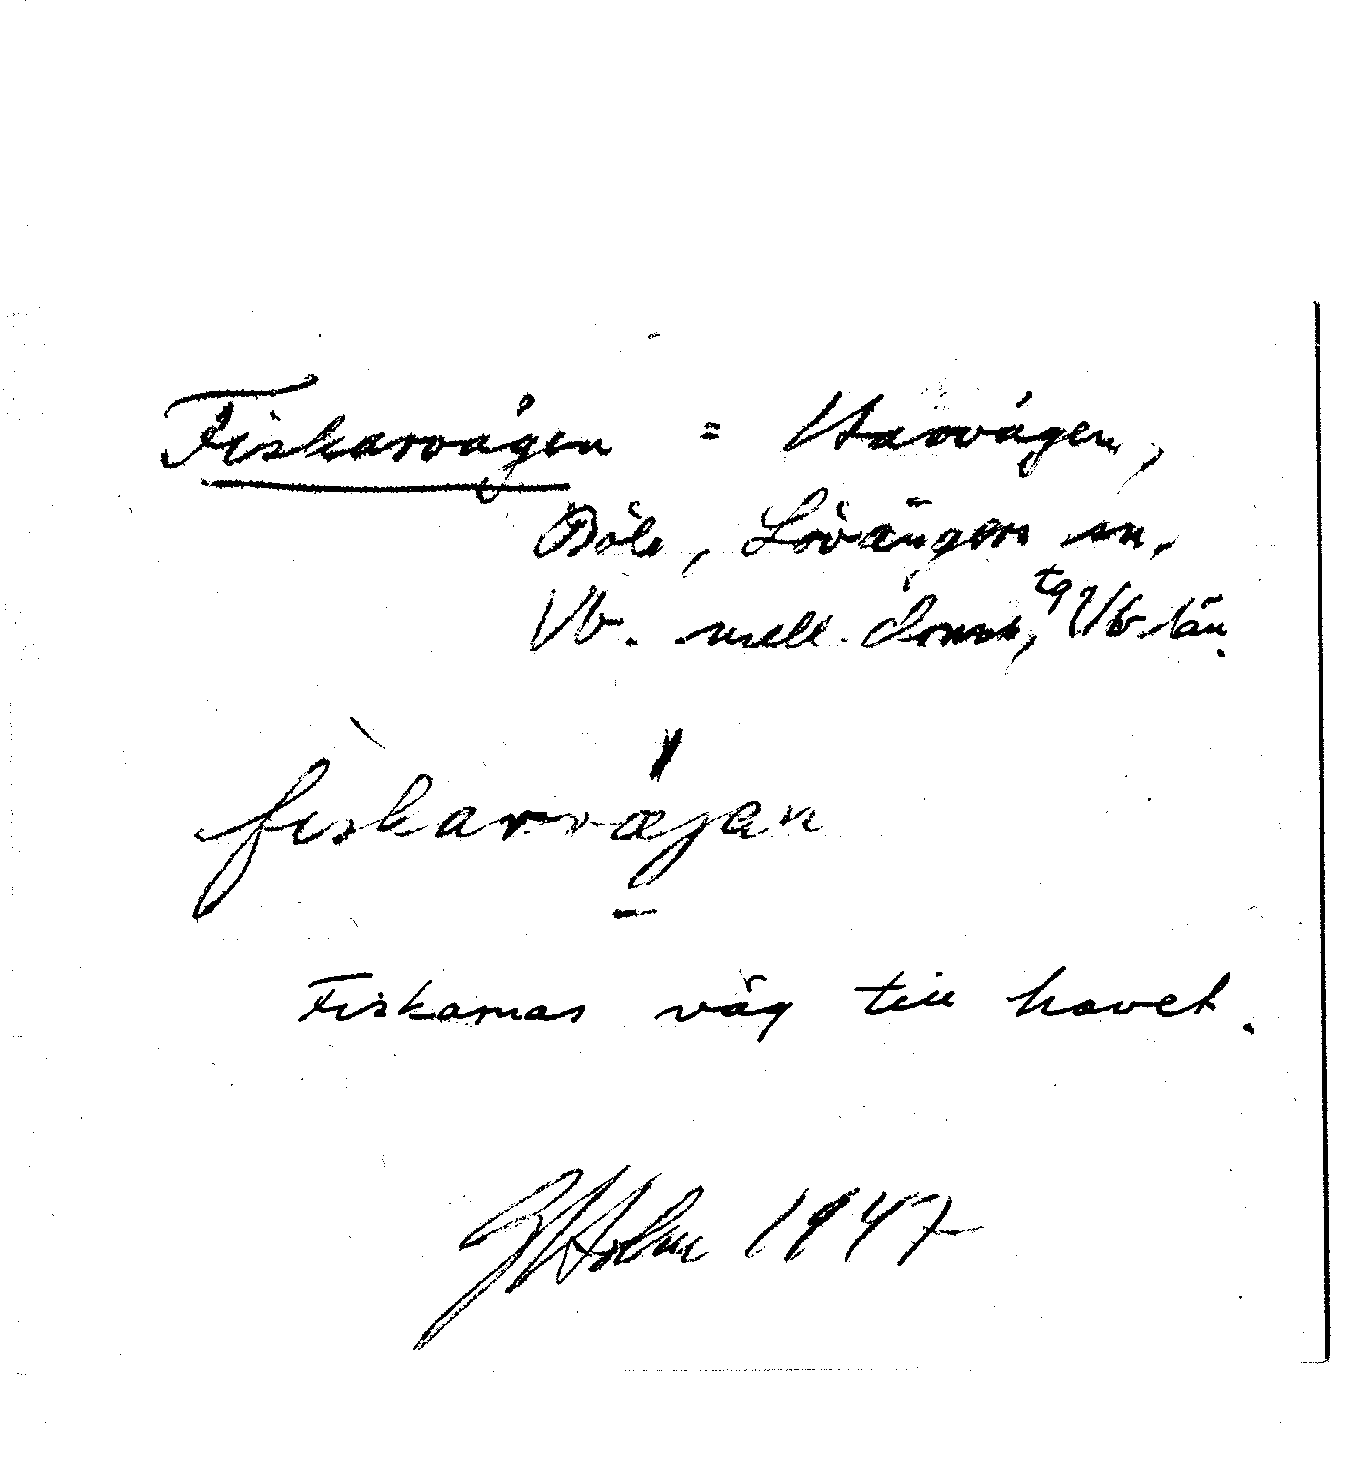 Fiskarvägen = Havvägen,
Böle, Lövångers sn,
Vb. mell. doms, tg Vb län.
fiskarvæjan
Fiskarnas väg till havet.
Holm 1947